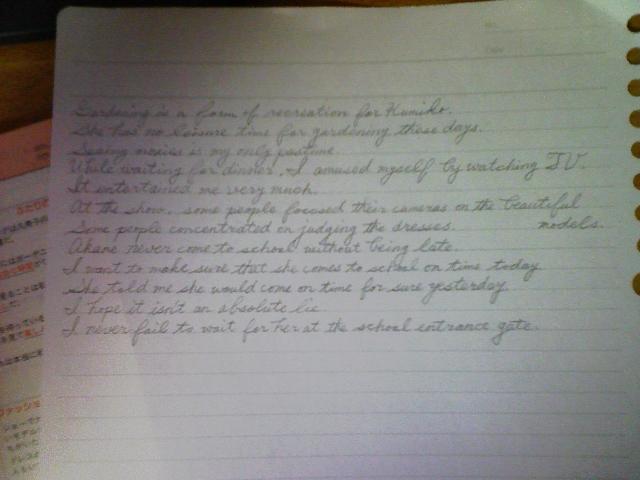 Gardening is a form of recreation for Kumiko.
She has no leisure time for gardening these days.
Seeing movies is my only pastime.
While waiting for dinner, I amused myself by watching TV.
It entertained me very much.
At the show, some people focused their cameras on the beautiful models.
Some people concentrated on judging the dresses.
Akane never come to school without being late.
I want to make sure that she comes to school on time today.
She told me she would come on time for sure yesterday.
I hope it isn't an absolute lie.
I never fail to wait for her at the school entrance gate.